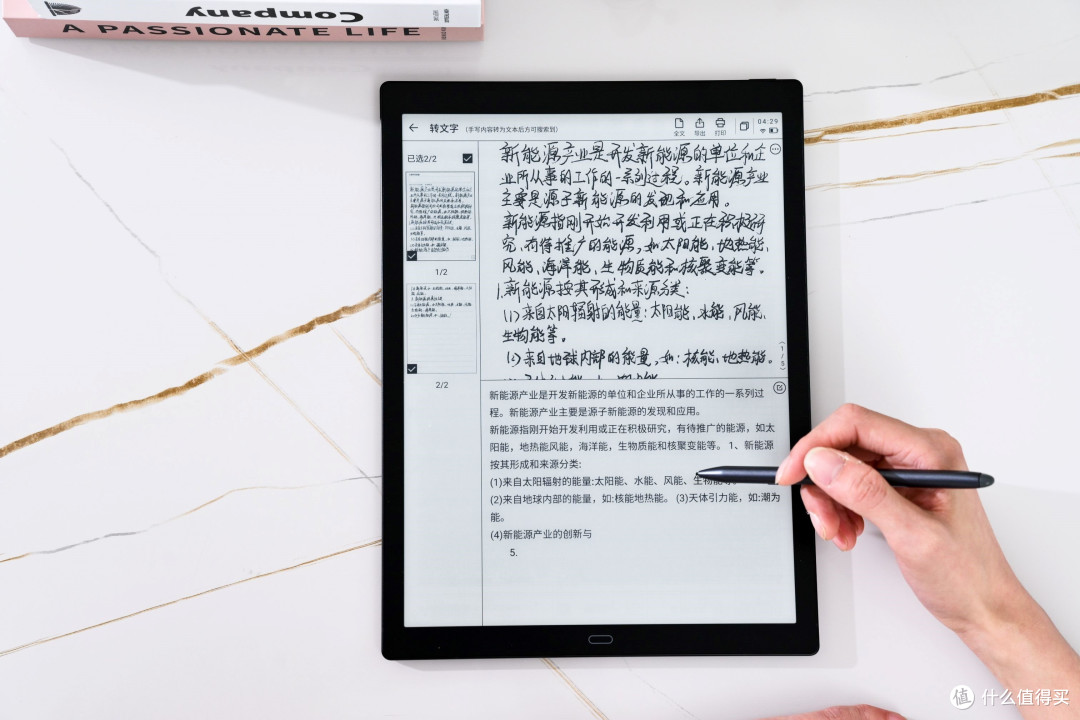 Company
A PASSIONATE LIFE
转文字 (手写内容转为文本后方可搜索到)
全文 导出 打印
04:29
已选2/2
1/2
2/2
新能源产业是开发新能源的单位和企
业所从事的工作的一系列过程。新能源产业
主要是源子新能源的发现和应用。
新能源指刚开始开发利用或正在积极研
究,有待推广的能源,如太阳能,地热能,
风能,海洋能,生物质能和核聚变能等。
1.新能源按其形成和来源分类:
(1)来自太阳辐射的能量:太阳能,水能,风能,
生物能等。
(2)来自地球内部的能量,如:核能,地热能。
(1/3)
新能源产业是开发新能源的单位和企业所从事的工作的一系列过
程。新能源产业主要是源子新能源的发现和应用。
新能源指刚开始开发利用或正在积极研究,有待推广的能源,如太
阳能,地热能风能,海洋能,生物质能和核聚变能等。 1、新能源
按其形成和来源分类:
(1)来自太阳辐射的能量:太阳能、水能、风能、生物能等。
(2)来自地球内部的能量,如:核能地热能。 (3)天体引力能,如:潮为
能。
(4)新能源产业的创新与
5.
值 什么值得买